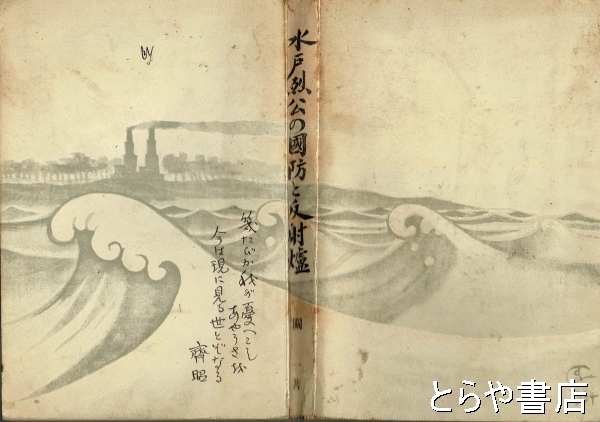 水戸烈公の國防と反射爐
幾たびか我が憂へこし
あやうきを
今は現に見る世とぞなる
齊昭
とらや書店